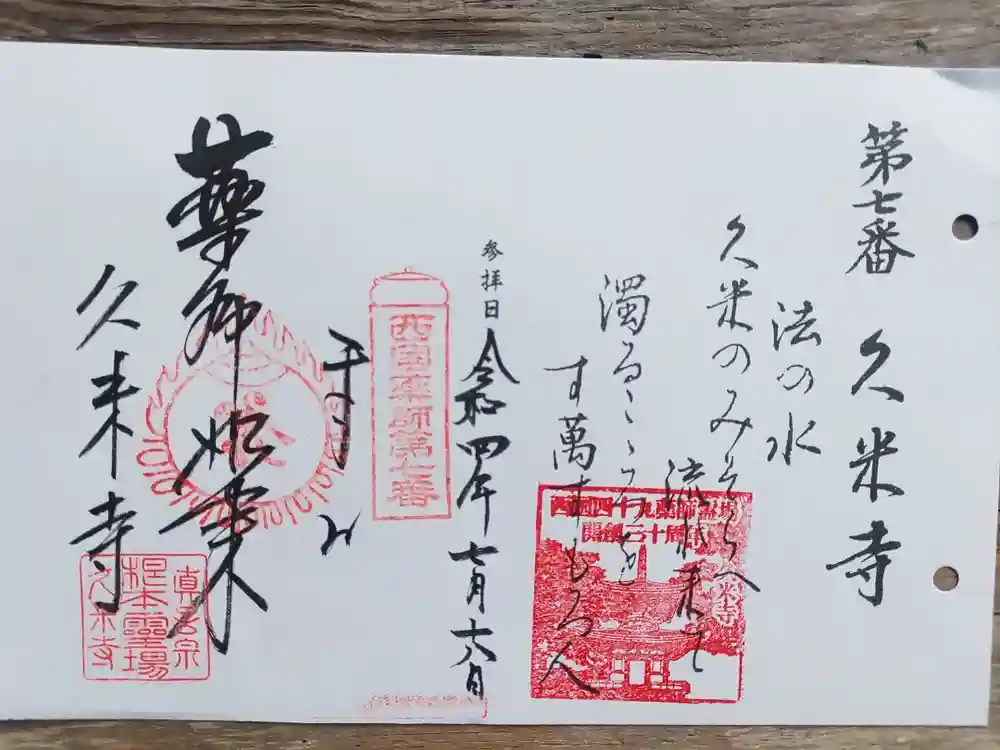 第七番 久米寺
法の水
久米のみそらへ
流れ来て
濁るこゝろを
すますもろ人
参拝日 令和四年七月六日
西国薬師第七番
奉拝
薬師如来
久米寺
西国四十九薬師霊場
久米寺
真言宗
根本霊場
久米寺